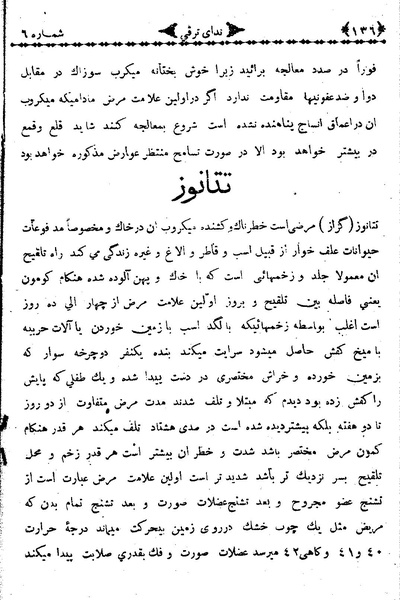 ﴿١٣٦﴾ ندای ترقی شماره ٦
فوراً در صدد معالجه برائید زیرا خوش بختانه میکرب سوزاك در مقابل
دوا و ضدعفونیها مقاومت ندارد اگر دراولین علامت مرض مادامیکه میکروب
ان دراعماق انساج پناهنده نشده است شروع بمعالجه کنند شاید قلع وقمع
در بیشتر خواهد بود الا در صورت تسامح منتظر عوارض مذکوره خواهد بود
تتانوز
تتانوز ( گزاز ) مرضی است خطرناك وکشنده میکروب ان درخاك و مخصوصاً مدفوعات
حیوانات علف خوار از قبیل اسب و قاطر و الاغ و غیره زندگی می کند راه تلقیح
ان معمولا جلد و زخمهائی است که با خاك و پهن آلوده شده هنکام کومون
یعنی فاصله بین تلقیح و بروز اولین علامت مرض از چهار الی ده روز
است اغلب بواسطه زخمهائیکه بالگد اسب با زمین خوردن یا آلات حربیه
با میخ کفش حاصل میشود سرایت میکند بنده یکنفر دوچرخه سوار که
بزمین خورده و خراش مختصری در دست پیدا شده و یك طفلی که پایش
را کفش زده بود دیدم که مبتلا و تلف شدند مدت مرض متفاوت از دو روز
تا دو هفته بلکه بیشتر دیده شده است در صدی هشتاد تلف میکند هر قدر هنکام
کمون مرض مختصر باشد شدت و خطر ان بیشتر است هر قدر زخم و محل
تلقیح بسر نزدیك تر باشد شدید تر است اولین علامت مرض عبارت است از
تشنج عضو مجروح و بعد تشنج عضلات صورت و بعد تشنج تمام بدن که
مریض مثل یك چوب خشك در روی زمین بیحرکت میماند درجۀ حرارت
٤٠ و ٤١ و کاهی ٤٢ میرسد عضلات صورت و فك بقدری صلابت پیدا میکند